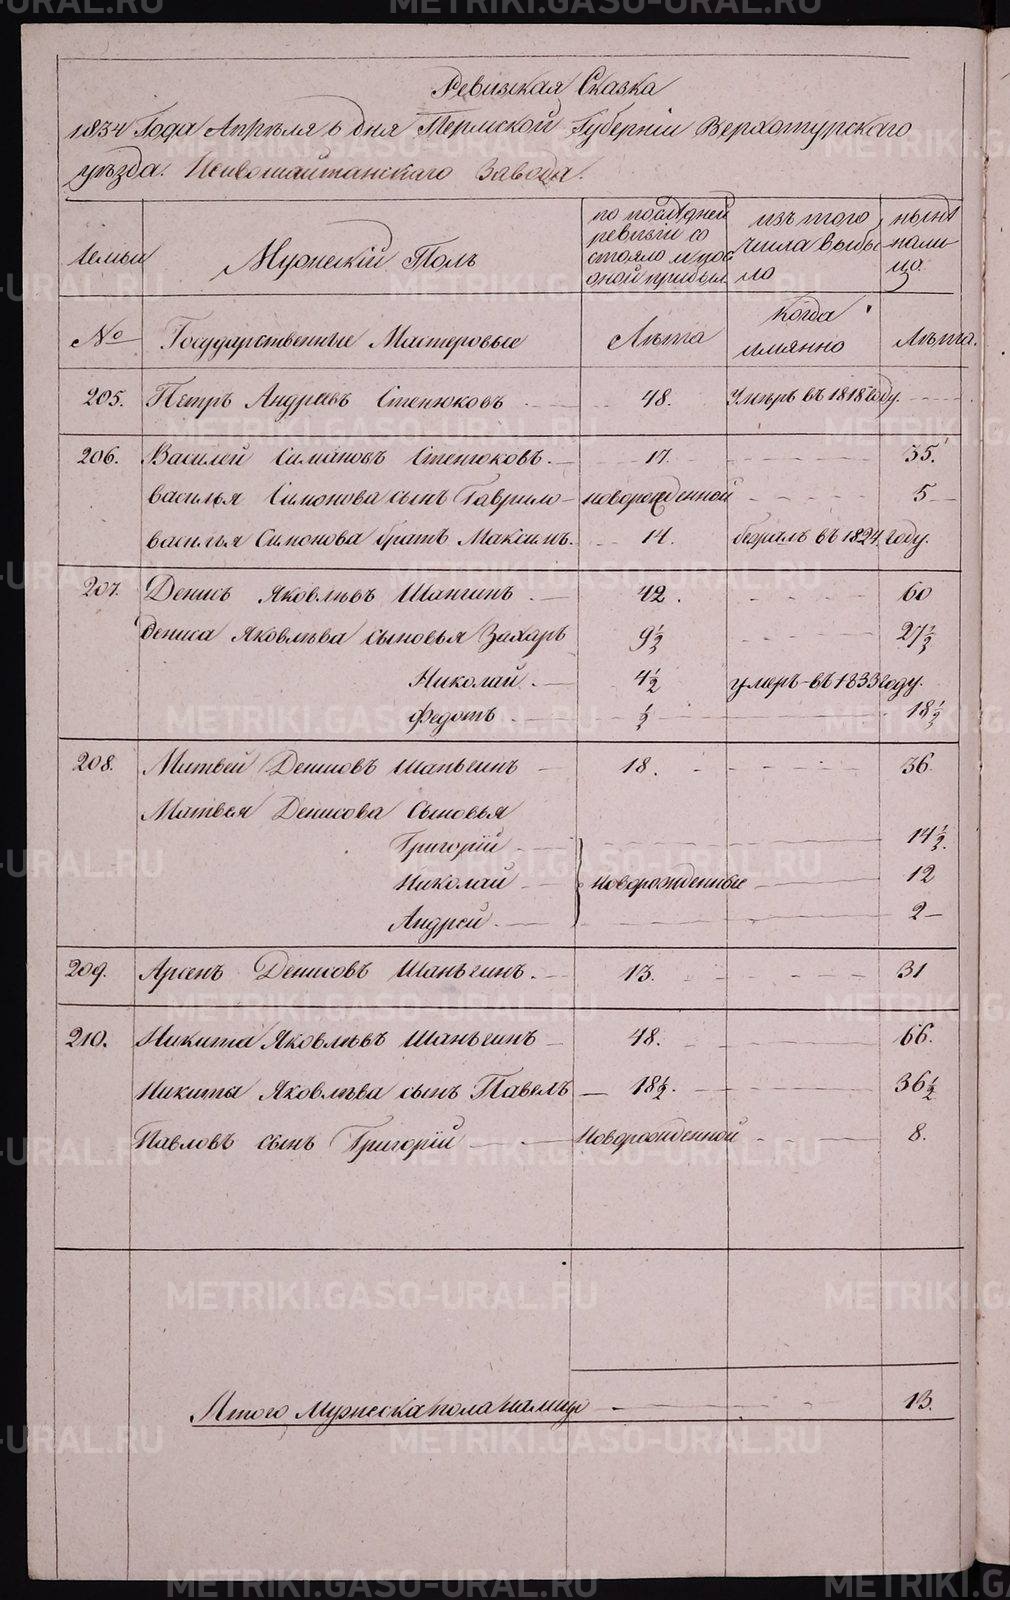 Ревизкая Сказка
1834 Года Апреля 6 дня Пермской Губерніи Верхотурского
уѣзда. Невьюшайтанскаго Завода.
Семьи
Мужескій Полъ
по последней ревизіи состояло и после оной прибыл
изъ того числа выбыло
нынѣ налицо.
№
Государственные Мастеровые
Лѣта
когда имянно
Лѣта.
205. Петръ Андреевъ Стенюковъ 48. Умеръ въ 1818 году.
206. Василей Симановъ Стенюковъ. 17. 35.
василья Симонова сынъ Гаврило новорожденной 5
василья Симонова братъ Максимъ. 14. бежалъ въ 1824 году.
207. Денисъ Яковлевъ Шангинъ. 42. 60
дениса Яковлева сыновья Захаръ 9½ 27½
Николай. 4½ умеръ въ 1833 году.
Федотъ. ½ 18½
208. Матвей Денисовъ Шаньгинъ 18. 36
Матвея Денисова Сыновья
Григорій 14½.
Николай новорожденные 12
Андрей. 2
209. Арсенъ Денисовъ Шаньгинъ. 13. 31
210. Никита Яковлевъ Шаньгинъ 48. 66.
Никиты Яковлева сынъ Павелъ 18½. 36½
Павловъ сынъ Григорій Новорожденной 8.
Итого мужеска пола налицо 13.
METRIKI.GASO-URAL.RU